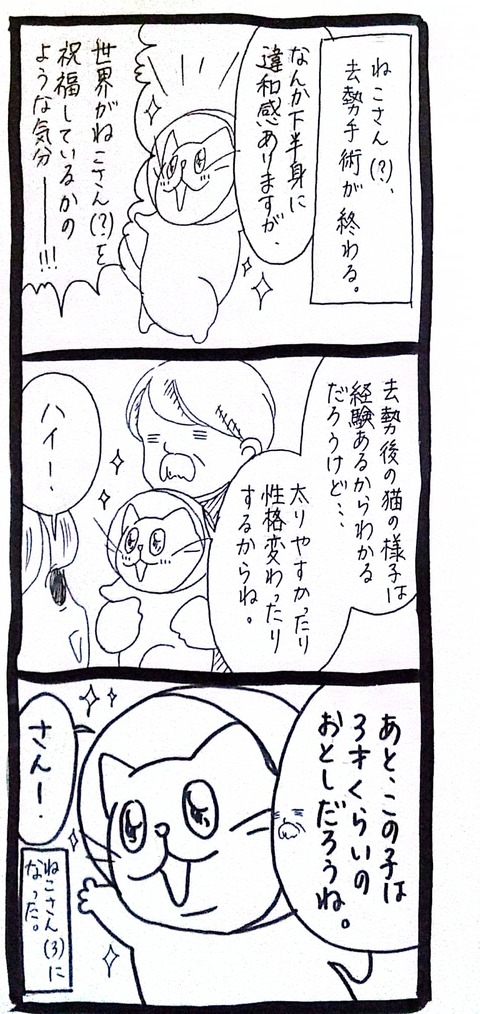 ねこさん(?)、
去勢手術が終わる。
なんか下半身に
違和感ありますが、
世界がねこさん(?)を
祝福しているかの
ような気分――!!!
去勢後の猫の様子は
経験あるからわかる
だろうけど…、
太りやすかったり
性格変わったり
するからね。
ハイー、
あと、この子は
3才くらいの
おとしだろうね。
さんー!
ねこさん(3)に
なった。